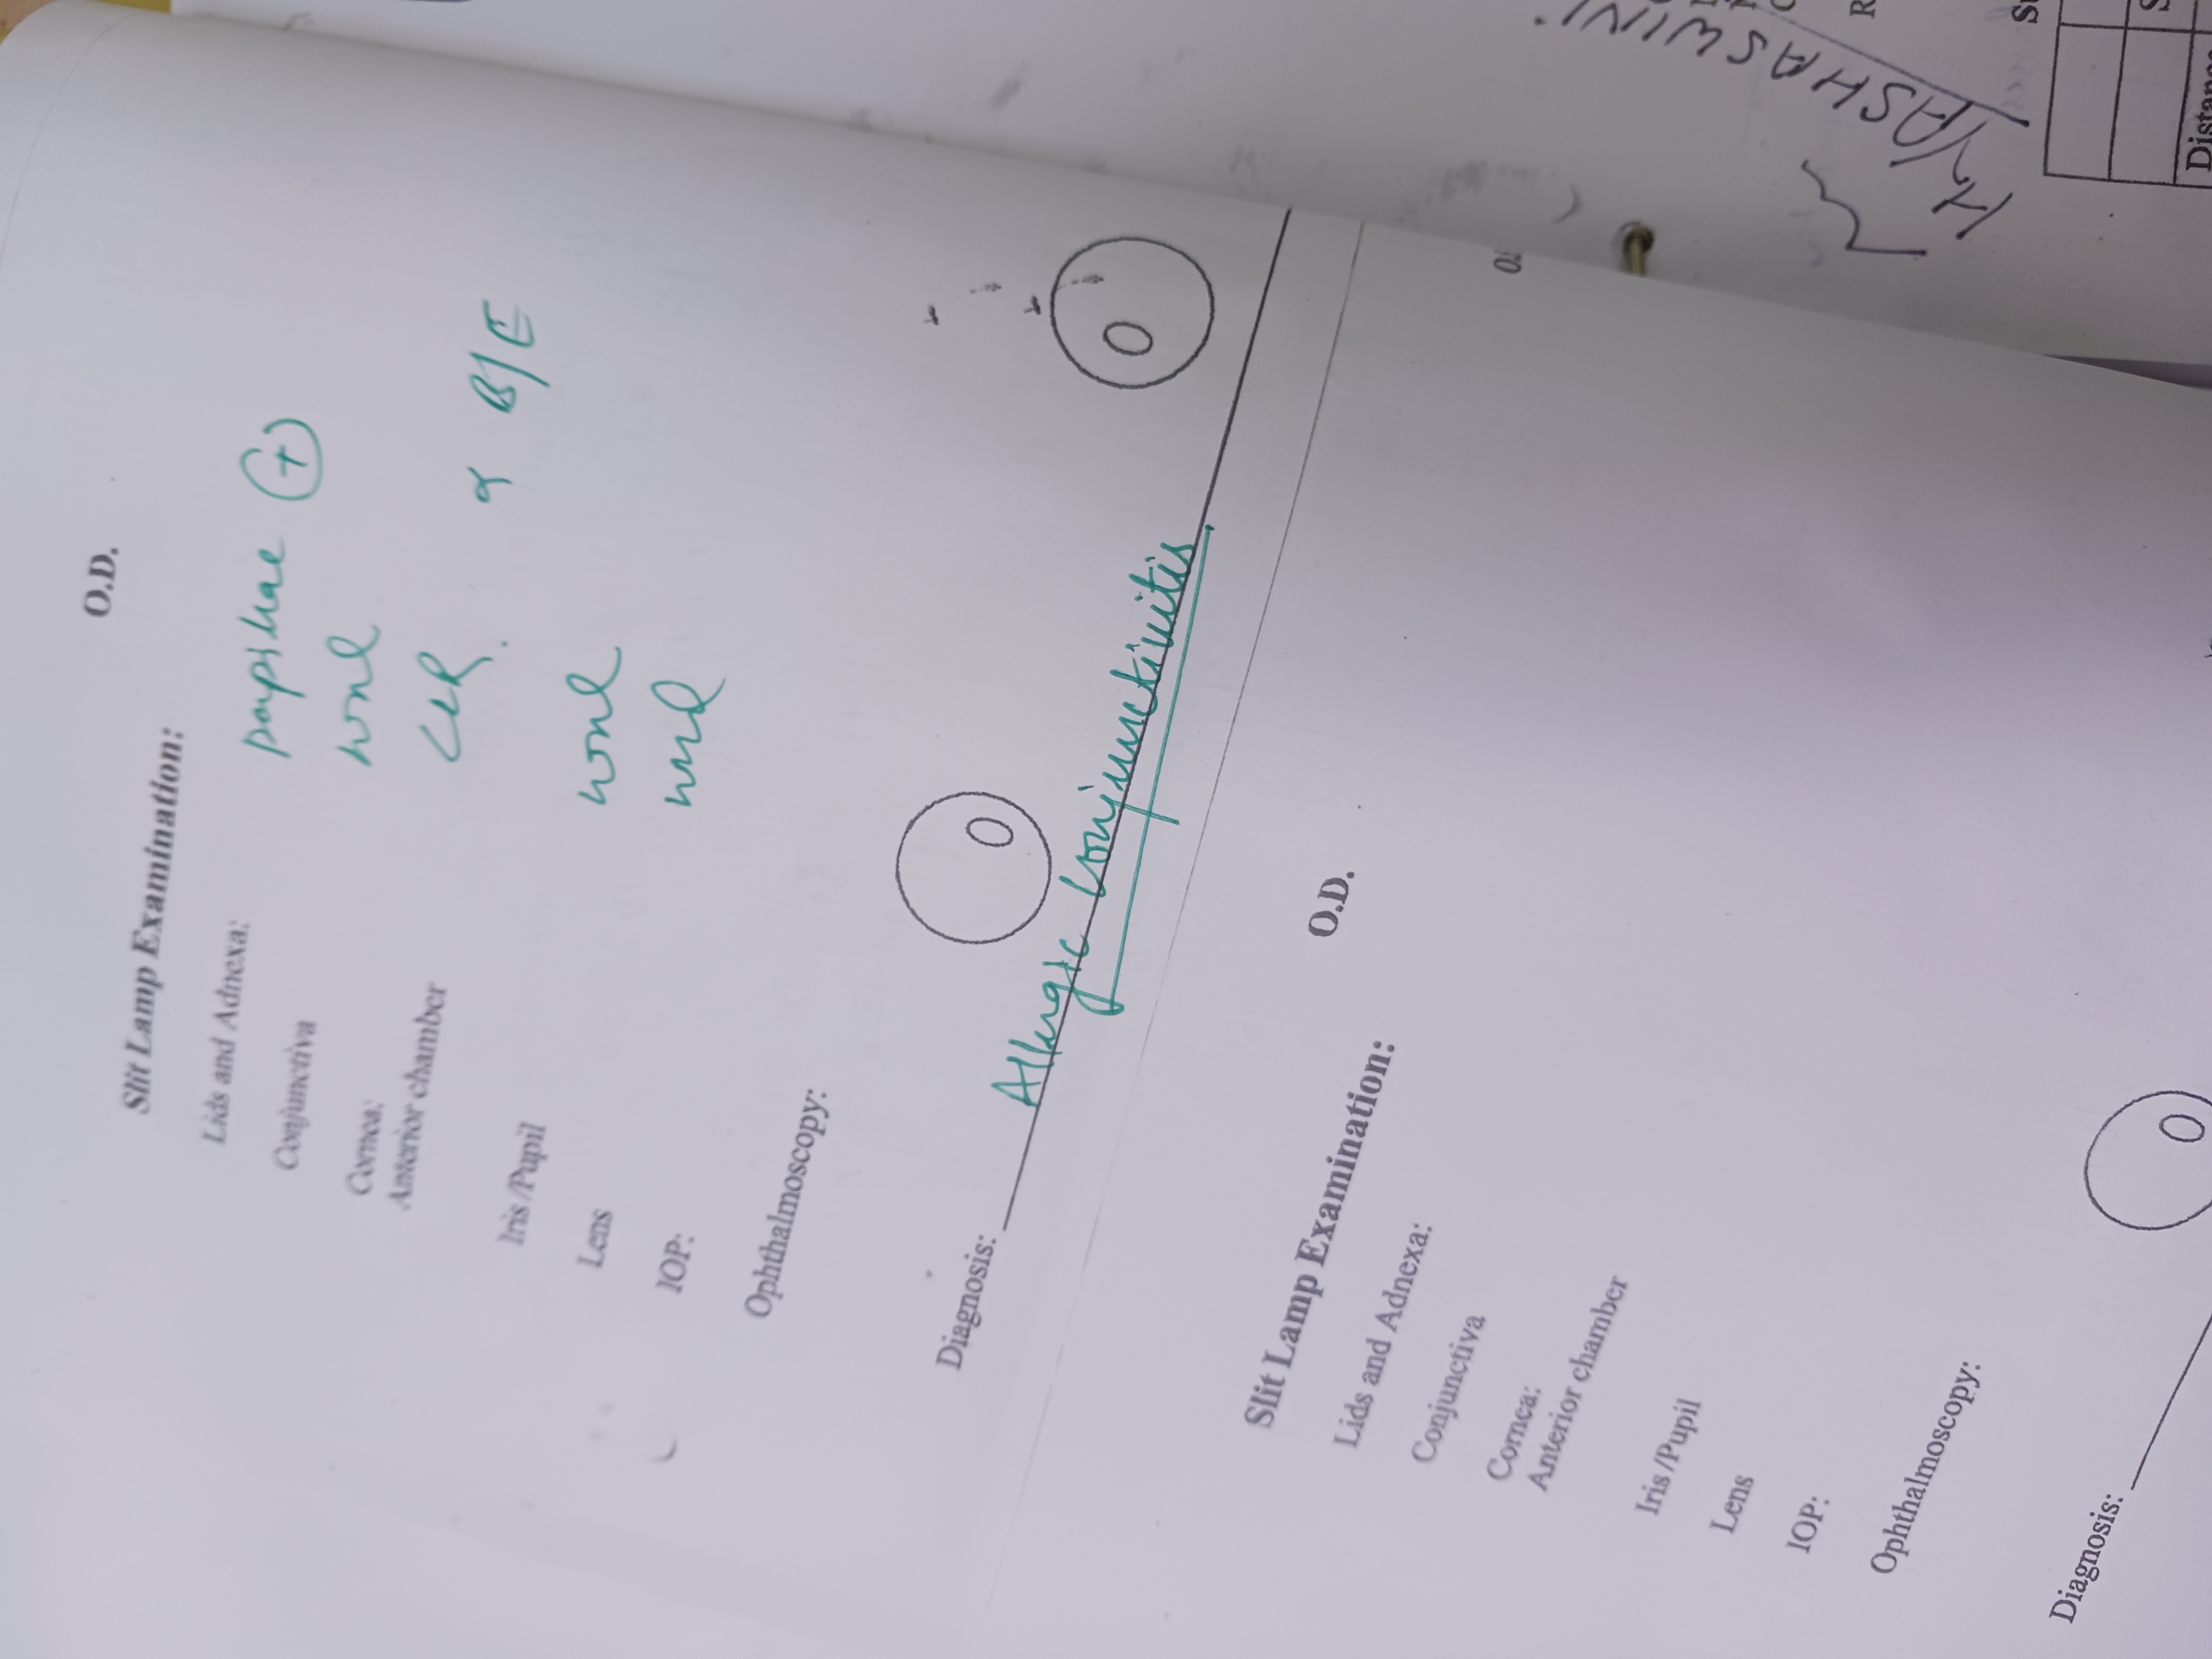 O.D.
Slit Lamp Examination:
Lids and Adnexa:
papillae (+)
Conjunctiva
wnl
Cornea:
Anterior chamber
of B/E
Iris /Pupil
wnl
Lens
wnl
IOP:
Ophthalmoscopy:
Diagnosis:
Allergic Conjunctivitis
O.D.
Slit Lamp Examination:
Lids and Adnexa:
Conjunctiva
Cornea:
Anterior chamber
Iris /Pupil
Lens
IOP:
Ophthalmoscopy:
Diagnosis:
YASHASWINI
Distance